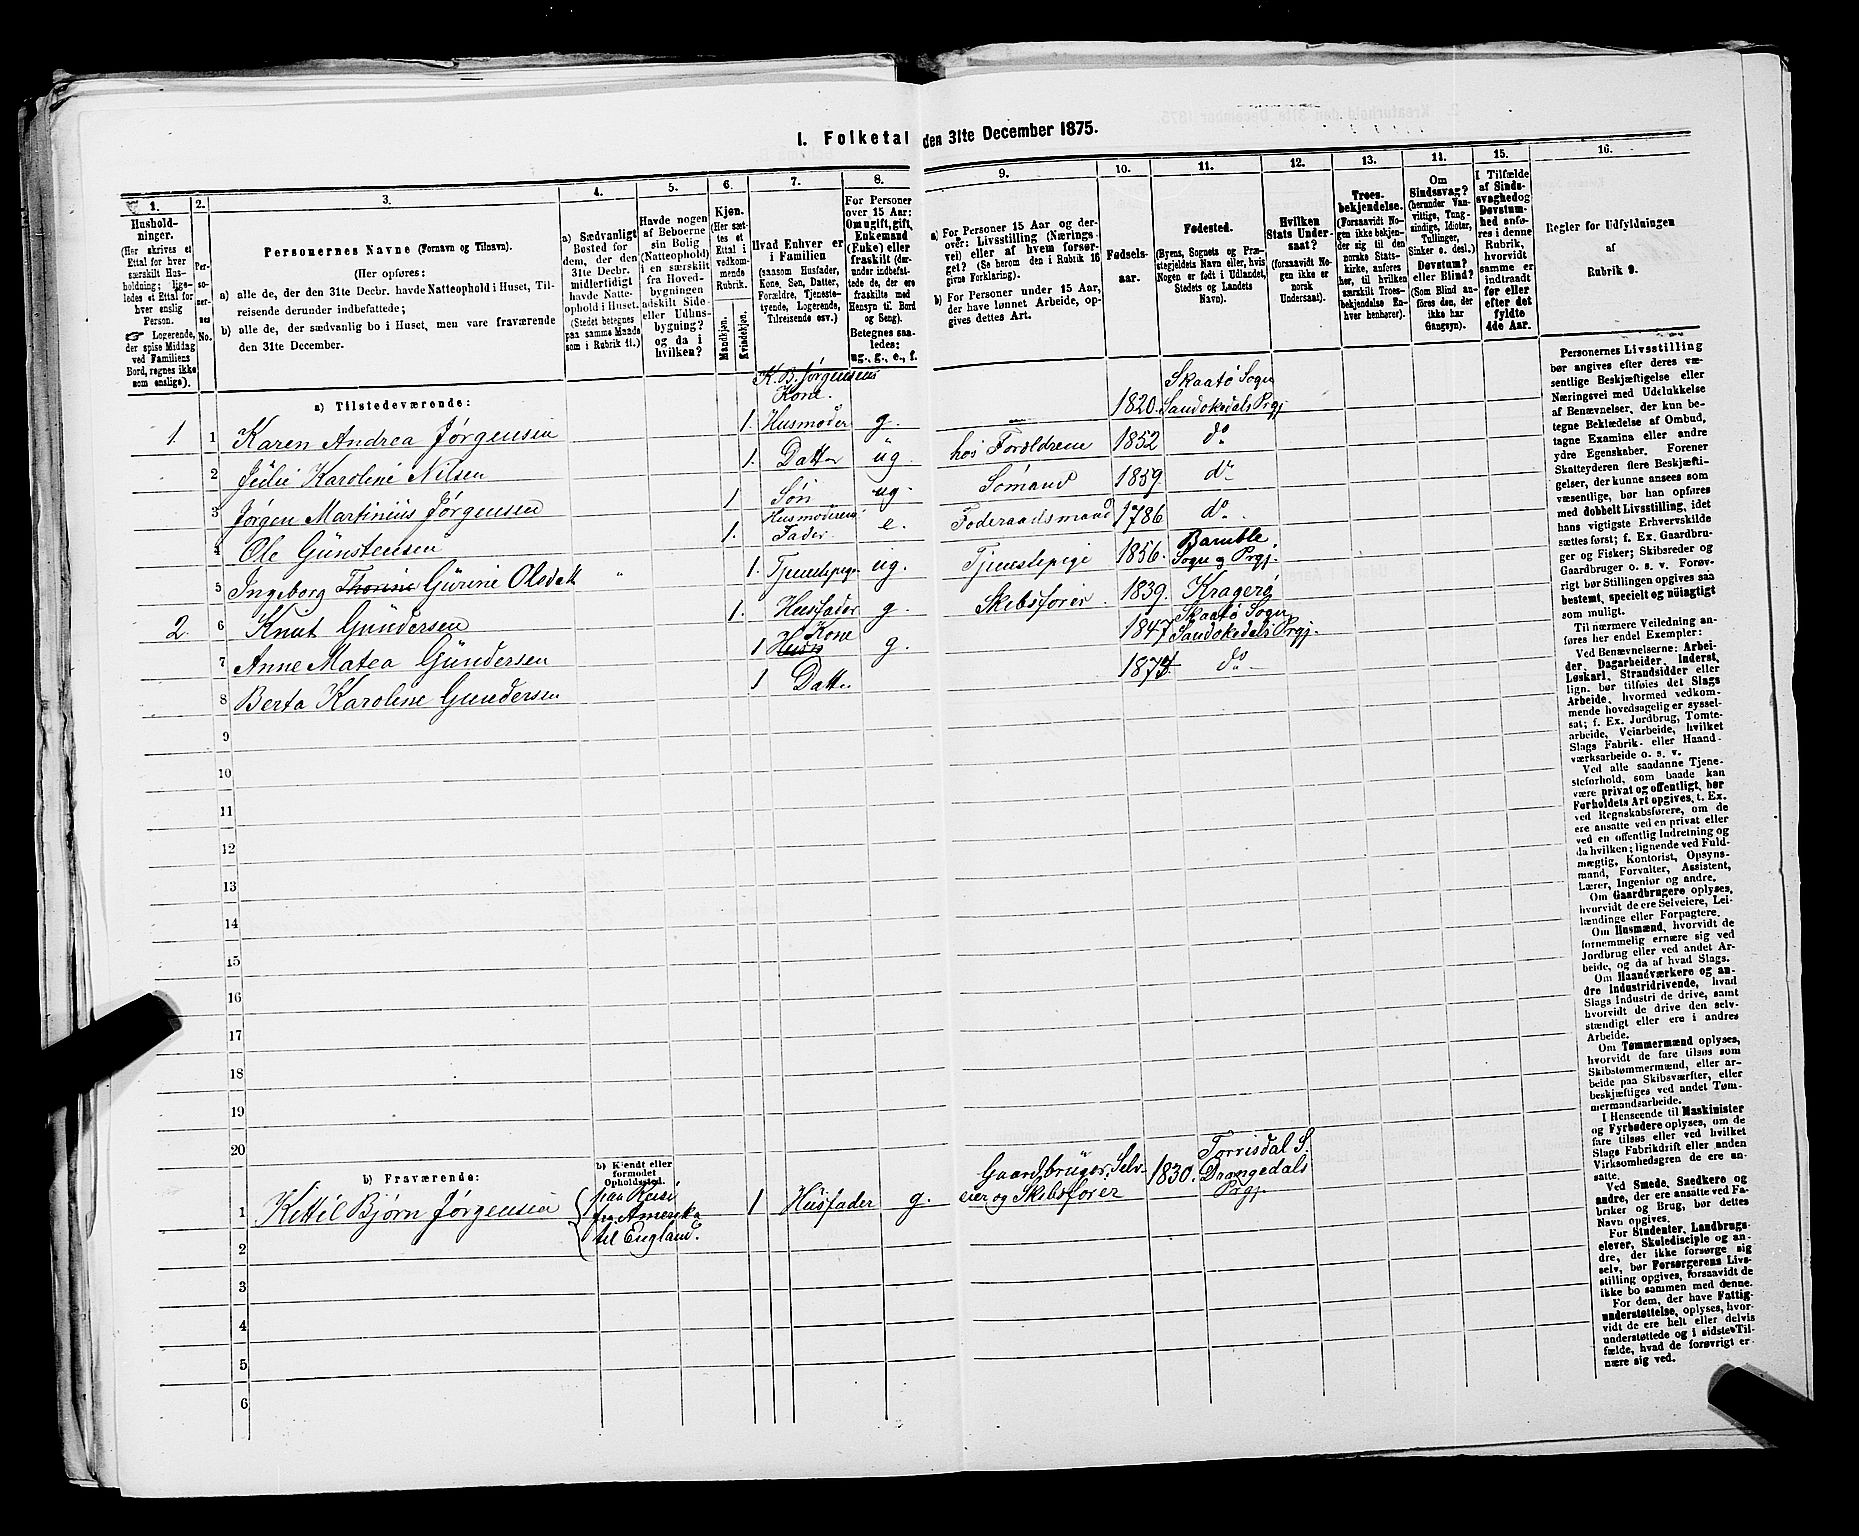 I. Folketal den 31te December 1875.
1.
Hushold-
ninger.
(Her skrives et
Ettal for hver
særskilt Hus-
holdning; lige-
ledes et Ettal for
hver enslig
Person.
☞ Logerende,
der spise Middag
ved Familiens
Bord, regnes ikke
som enslige).
2.
Per-
so-
ner-
nes
No.
3.
Personernes Navne (Fornavn og Tilnavn).
(Her opføres:
a) alle de, der den 31te Decbr. havde Natteophold i Huset, Til-
reisende derunder indbefattede;
b) alle de, der sædvanlig bo i Huset, men vare fraværende
den 31te December.
4.
a) Sædvanligt
Bosted for
dem, der den
31te Decbr.
midlertidigt
havde Natte-
ophold i Huset.
(Stedet betegnes
paa samme Maade
som i Rubrik 11.)
5.
Havde nogen
af Beboerne
sin Bolig
(Natteophold)
i en særskilt
fra Hoved-
bygningen
adskilt Side-
eller Udhus-
bygning?
og da i
hvilken?
6.
Kjøn.
(Her sæt-
tes et
Ettal i
vedkom-
mende
Rubrik.
Mandkjøn.
Kvindekjøn.
7.
Hvad Enhver er
i Familien
(saasom Husfader,
Kone, Søn, Datter,
Forældre, Tjeneste-
tyende, Logerende,
Tilreisende osv.)
8.
For Personer
over 15 Aar:
Om ugift, gift,
Enkemand
(Enke) eller
fraskilt (der-
under indbefat-
tede de, der ere
fraskilte med
Hensyn til Bord
og Seng).
Betegnes saa-
ledes:
ug., g., e., f.
9.
a) For Personer 15 Aar og der-
over: Livsstilling (Nærings-
vei) eller af hvem forsør-
get? (Se herom den i Rubrik 16
givne Forklaring).
b) For Personer under 15 Aar,
der have lønnet Arbeide, op-
gives dettes Art.
10.
Fødsels-
aar.
11.
Fødested.
(Byens, Sognets og Præ-
stegjeldets Navn eller, hvis
Nogen er født i Udlandet,
Stedets og Landets
Navn).
12.
Hvilken
Stats Under-
saat?
(forsaavidt No-
gen ikke er
norsk
Undersaat).
13.
Troes-
bekjendelse.
(Forsaavidt No-
gen ikke bekjen-
der sig til den
norske Stats-
kirke, anføres
her, til hvilken
særskilt Troes-
bekjendelse En-
hver henhører).
14.
Om
Sindssvag?
(herunder Van-
vittige, Tung-
sindige, Idioter,
Tullinger,
Sinker o. desl.)
Døvstum?
eller Blind?
(Som Blind an-
føres den, der
ikke har
Gangsyn).
15.
I Tilfælde
af Sinds-
svaghed og
Døvstum-
hed anfø-
res i denne
Rubrik,
hvorvidt
samme er
indtraadt
før eller
efter det
fyldte
4de Aar.
16.
Regler for Udfyldningen
af
Rubrik 9.
a) Tilstedeværende:
K. B. Jørgensens
Kone.
Skaatø Sogn
1 1 Karen Andrea Jørgensen 1. Husmoder g. — 1820. Sandøkedals Prgj.
2 Jülie Karoline Nilsen 1. Datter üg. hos Foroldrene 1852 do
3 Jørgen Martiniüs Jørgensen 1 Søn üg. Sømand 1859 do
4 Ole Günstensen 1. Husmoderens Fader e. Foderaadsmand 1786 do.
5 Ingeborg Thorine Gürine Olsdatt " 1. Tjenestepige üg. Tjenestepige 1856. Bamble Sogn og Prgj.
2 6 Knut Gündersen 1. Husfader g. Skibsfører. 1839. Kragerø
7 Anne Matea Gündersen 1 Kone g. 1847 Skaatø Sogn Sandøkedals Prgj.
8 Berta Karoline Gundersen 1 Datter 1874 do
9
10
11
12
13
14
15
16
17
18
19
20
b) Fraværende:
b) Kjendt eller
formodet
Opholdssted.
1 Kittil Bjørn Jørgensen paa Reise fra Amerika til England. 1 Husfader g. Gaardbrüger, Selveier og Skibsfører 1830. Torrisdal S. Drangedals Prgj.
2
3
4
5
6
Personernes Livsstilling
bør angives efter deres væ-
sentlige Beskjæftigelse eller
Næringsvei med Udelukkelse
af Benævnelser, der kun be-
tegne Beklædelse af Ombud,
tagne Examina eller andre
ydre Egenskaber. Forener
Skatteyderen flere Beskjæfti-
gelser, der kunne ansees som
væsentlige, bør han opføres
med dobbelt Livsstilling, idet
hans vigtigste Erhvervskilde
sættes først; f. Ex. Gaardbru-
ger og Fisker; Skibsreder og
Gaardbruger o. s. v. Forøv-
rigt bør Stillingen opgives saa
bestemt, specielt og nøiagtigt
som muligt.
Til nærmere Veiledning an-
føres her endel Exempler:
Ved Benævnelserne: Arbei-
der, Dagarbeider, Inderst,
Løskarl, Strandsidder eller
lign. bør tilføies det Slags
Arbeide, hvormed vedkom-
mende hovedsagelig er syssel-
sat; f. Ex. Jordbrug, Tomte-
arbeide, Veiarbeide, hvilket
Slags Fabrik- eller Haand-
værksarbeide o. s. v.
Ved alle saadanne Tjene-
steforhold, som baade kan
være privat og offentligt, bør
Forholdets Art opgives, t. Ex.
ved Regnskabsførere, om de
ere ansatte ved en privat eller
ved en offentlig Indretning og
da hvilken; lignende ved Fuld-
mægtig, Kontorist, Opsyns-
mand, Forvalter, Assistent,
Lærer, Ingeniør og andre.
Om Gaardbrugere oplyses,
hvorvidt de ere Selveiere, Lei-
lændinge eller Forpagtere.
Om Husmænd, hvorvidt de
fornemmelig ernære sig ved
Jordbrug eller ved andet Ar-
beide, og da af hvad Slags.
Om Haandværkere og an-
dre Industridrivende, hvad
Slags Industri de drive, samt
hvorvidt de drive den selv-
stændigt eller ere i andres
Arbeide.
Om Tømmermænd oplyses,
hvorvidt de fare tilsøs som
Skibstømmermænd, eller ar-
beide paa Skibsværfter, eller
beskjæftiges ved andet Tøm-
mermandsarbeide.
I Henseende til Maskinister
og Fyrbødere oplyses, om de
fare tilsøs eller ved hvilket
Slags Fabrikdrift eller anden
Virksomhedsgren de ere an-
satte.
Ved Smede, Snedkere og
andre, der ere ansatte ved Fa-
briker og Brug, bør dettes
Navn opgives.
For Studenter, Landbrugs-
elever, Skoledisciple og an-
dre, der ikke forsørge sig
selv, bør Forsørgerens Livs-
stilling opgives, forsaavidt de
ikke bo sammen med denne.
For dem, der have Fattig-
understøttelse, oplyses, hvor-
vidt de ere helt eller delvis
understøttede og i sidste Til-
fælde, hvad de forøvrigt er-
nære sig ved.